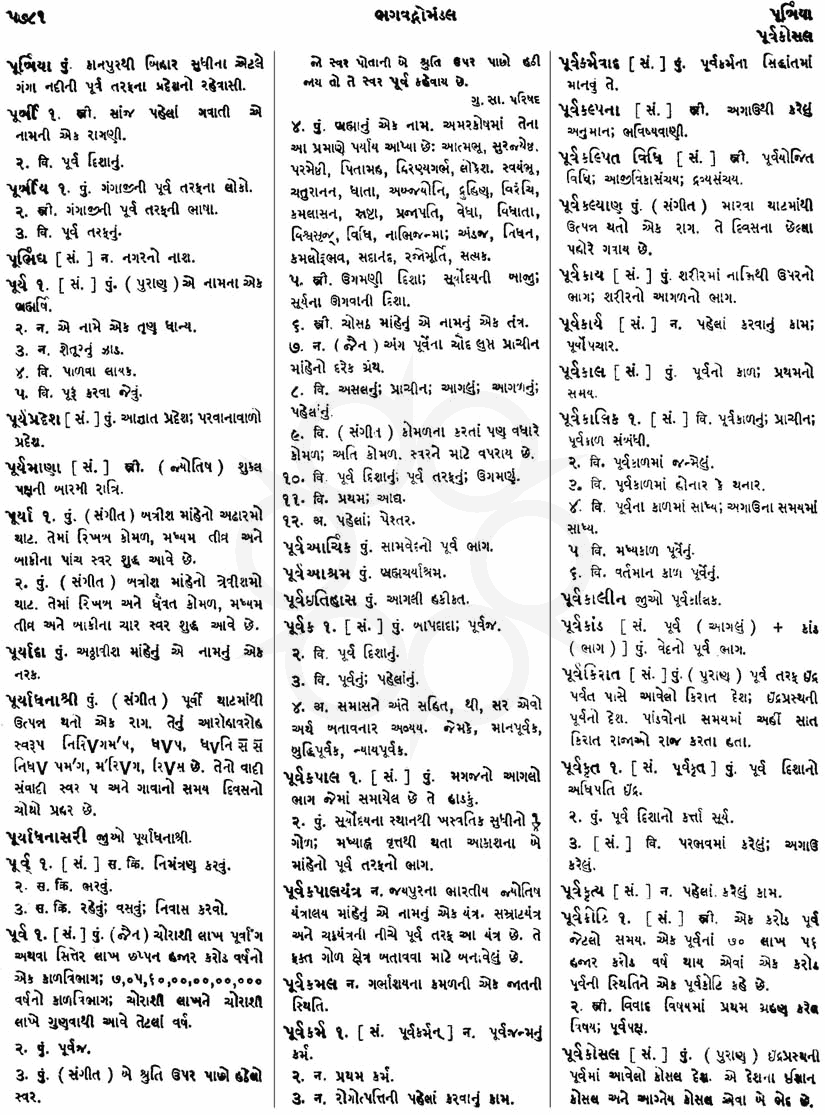 ૫૭૮૧
ભગવદ્ગોમંડલ
પૂર્બિયા
પૂર્વકોસલ
પૂર્બિયા પું. કાનપુરથી બિહાર સુધીના એટલે
ગંગા નદીની પૂર્વ તરફના પ્રદેશનો રહેવાસી.
પૂર્બી ૧. સ્ત્રી. સાંજ પહેલાં ગવાતી એ
નામની એક રાગણી.
૨. વિ. પૂર્વ દિશાનું.
પૂર્બીય ૧. પું. ગંગાજીની પૂર્વ તરફના લોકો.
૨. સ્ત્રી. ગંગાજીની પૂર્વ તરફની ભાષા.
૩. વિ. પૂર્વ તરફનું.
પૂર્ભિદ્ય [ સં. ] ન. નગરનો નાશ.
પૂર્ય ૧. [ સં. ] પું. ( પુરાણ ) એ નામના એક
બ્રહ્મર્ષિ.
૨. ન. એ નામે એક તૃણ ધાન્ય.
૩. ન. શેતૂરનું ઝાડ.
૪. વિ. પાળવા લાયક.
૫. વિ. પૂરૂં કરવા જેવું.
પૂર્યપ્રદેશ [ સં. ] પું. આજ્ઞાત પ્રદેશ; પરવાનાવાળો
પ્રદેશ.
પૂર્યમાણા [ સં. ] સ્ત્રી. ( જ્યોતિષ ) શુકલ
પક્ષની બારમી રાત્રિ.
પૂર્યા ૧. પું. (સંગીત) બત્રીશ માંહેનો અઢારમો
થાટ. તેમાં રિખબ કોમળ, મધ્યમ તીવ્ર અને
બાકીના પાંચ સ્વર શુદ્ધ આવે છે.
૨. પું. ( સંગીત ) બત્રીશ માંહેનો ત્રેવીશમો
થાટ. તેમાં રિખબ અને ધૈવત કોમળ, મધ્યમ
તીવ્ર અને બાકીના ચાર સ્વર શુદ્ધ આવે છે.
પૂર્યાદા પું. અઠ્ઠાવીશ માંહેનું એ નામનું એક
નરક.
પૂર્યાધનાશ્રી પું. (સંગીત) પૂર્વી થાટમાંથી
ઉત્પન્ન થતો એક રાગ. તેનું આરોહાવરોહ
સ્વરૂપ
છે. તેનો વાદી
સંવાદી સ્વર ૫ અને ગાવાનો સમય દિવસનો
ચોથો પ્રહર છે.
પૂર્યાધનાસરી જુઓ પૂર્યાધનાશ્રી.
પૂર્વ્ ૧. [ સં. ] સ. ક્રિ. નિમંત્રણ કરવું.
૨. સ. ક્રિ. ભરવું.
૩. સ. ક્રિ. રહેવું; વસવું; નિવાસ કરવો.
પૂર્વ ૧. [ સં. ] પું. (જૈન) ચોરાશી લાખ પૂર્વાંગ
અથવા સિત્તેર લાખ છપ્પન હજાર કરોડ વર્ષનો
એક કાળવિભાગ; ૭,૦૫,૬૦,૦૦,૦૦,૦૦,૦૦૦
વર્ષનો કાળવિભાગ; ચોરાશી લાખને ચોરાશી
લાખે ગુણવાથી આવે તેટલાં વર્ષ.
૨. પું. પૂર્વજ.
૩. પું. (સંગીત) બે શ્રુતિ ઉપર પાછો હઠેલો
સ્વર.
જે સ્વર પોતાની બે શ્રુતિ ઉપર પાછો હઠી
જાય તો તે સ્વર પૂર્વ કહેવાય છે.
ગુ. સા. પરિષદ
૪. પું. બ્રહ્માનું એક નામ. અમરકોષમાં તેના
આ પ્રમાણે પર્યાય આપ્યા છે: આત્મભૂ, સુરજ્યેષ્ઠ.
પરમેષ્ઠી, પિતામહ, હિરણ્યગર્ભ, લોકેશ. સ્વયંભૂ,
ચતુરાનન, ધાતા, અબ્જયોનિ, દ્રુહિણ, વિરંચિ,
કમલાસન, સ્રષ્ટા, પ્રજાપતિ, વેધા, વિધાતા,
વિશ્વસૃજ્, વિધિ, નાભિજન્મા; અંડજ, નિધન,
કમલોદ્ભવ, સદાનંદ, રજોમૂર્તિ, સત્યક.
૫. સ્ત્રી. ઉગમણી દિશા; સૂર્યોદયની બાજુ;
સૂર્યના ઊગવાની દિશા.
૬. સ્ત્રી. ચોસઠ માંહેનું એ નામનું એક તંત્ર.
૭. ન. (જૈન) અંગ પૂર્વેના ચૌદ લુપ્ત પ્રાચીન
માંહેનો દરેક ગ્રંથ.
૮. વિ. અસલનું; પ્રાચીન; આગલું; આગળનું;
પહેલાંનું.
૯. વિ. ( સંગીત ) કોમળના કરતાં પણ વધારે
કોમળ; અતિ કોમળ. સ્વરને માટે વપરાય છે.
૧૦. વિ. પૂર્વ દિશાનું; પૂર્વ તરફનું; ઉગમણું.
૧૧. વિ. પ્રથમ; આદ્ય.
૧૨. અ. પહેલાં; પેસ્તર.
પૂર્વઆર્ચિક પું. સામવેદનો પૂર્વ ભાગ.
પૂર્વઆશ્રમ પું. બ્રહ્મચર્યાશ્રમ.
પૂર્વઇતિહાસ પું. આગલી હકીકત.
પૂર્વક ૧. [ સં. ] પું. બાપદાદા; પૂર્વજ.
૨. વિ. પૂર્વ દિશાનું.
૩. વિ. પૂર્વનું; પહેલાંનું.
૪. અ. સમાસને અંતે સહિત, થી, સર એવો
અર્થ બતાવનાર અવ્યય. જેમકે, માનપૂર્વક,
બુદ્ધિપૂર્વક, ન્યાયપૂર્વક.
પૂર્વકપાલ ૧. [ સં. ] પું. મગજનો આગલો
ભાગ જેમાં સમાયેલ છે તે હાડકું.
૨. પું. સૂર્યોદયના સ્થાનથી ખસ્વતિક સુધીનો
ગોળ; મધ્યાહ્ન વૃત્તથી થતા આકાશના બે
માંહેનો પૂર્વ તરફનો ભાગ.
પૂર્વકપાલયંત્ર ન. જયપુરના ભારતીય જ્યોતિષ
યંત્રાલય માંહેનું એ નામનું એક યંત્ર. સમ્રાટયંત્ર
અને ચક્રયંત્રની નીચે પૂર્વ તરફ આ યંત્ર છે. તે
ફક્ત ગોળ ક્ષેત્ર બતાવવા માટે બનાવેલું છે.
પૂર્વકમલ ન. ગર્ભાશયના કમળની એક જાતની
સ્થિતિ.
પૂર્વકર્મ ૧. [ સં. પૂર્વકર્મન્ ] ન. પૂર્વજન્મનું
કર્મ.
૨. ન. પ્રથમ કર્મ.
૩. ન. રોગોત્પત્તિની પહેલાં કરવાનું કામ.
પૂર્વકર્મવાદ [ સં. ] પું. પૂર્વકર્મના સિદ્ધાંતમાં
માનવું તે.
પૂર્વકલ્પના [ સં. ] સ્ત્રી. અગાઉથી કરેલું
અનુમાન; ભવિષ્યવાણી.
પૂર્વકલ્પિત વિધિ [ સં. ] સ્ત્રી. પૂર્વયોજિત
વિધિ; આજીવિકાસંચય; દ્રવ્યસંચય.
પૂર્વકલ્યાણ પું. ( સંગીત ) મારવા થાટમાંથી
ઉત્પન્ન થતો એક રાગ. તે દિવસના છેલ્લા
પહોરે ગવાય છે.
પૂર્વકાય [ સં. ] પું. શરીરમાં નાભિથી ઉપરનો
ભાગ; શરીરનો આગળનો ભાગ.
પૂર્વકાર્ય [ સં. ] ન. પહેલાં કરવાનું કામ;
પૂર્વોપચાર.
પૂર્વકાલ [ સં. ] પું. પૂર્વનો કાળ; પ્રથમનો
સમય.
પૂર્વકાલિક ૧. [ સં. ] વિ. પૂર્વકાળનું; પ્રાચીન;
પૂર્વકાળ સંબંધી.
૨. વિ. પૂર્વકાળમાં જન્મેલું.
૩. વિ. પૂર્વકાળમાં હોનાર કે થનાર.
૪. વિ. પૂર્વના કાળમાં સાધ્ય; અગાઉના સમયમાં
સાધ્ય.
૫ વિ. મધ્યકાળ પૂર્વેનું.
૬. વિ. વર્તમાન કાળ પૂર્વેનું.
પૂર્વકાલીન જુઓ પૂર્વકાલિક.
પૂર્વકાંડ [ સં. પૂર્વ ( આગલું ) + કાંડ
( ભાગ ) ] પું. વેદનો પૂર્વ ભાગ.
પૂર્વકિરાત [ સં. ] પું. ( પુરાણ ) પૂર્વ તરફ ઇંદ્ર
પર્વત પાસે આવેલો કિરાત દેશ; ઇંદ્રપ્રસ્થની
પૂર્વનો દેશ. પાંડવોના સમયમાં અહીં સાત
કિરાત રાજાઓ રાજ કરતા હતા.
પૂર્વકૃત ૧. [ સં. પૂર્વકૃત્ ] પું. પૂર્વ દિશાનો
અધિપતિ ઇંદ્ર.
૨. પું. પૂર્વ દિશાનો કર્ત્તા સૂર્ય.
૩. [ સં. ] વિ. પરભવમાં કરેલું; અગાઉ
કરેલું.
પૂર્વકૃત્ય [ સં. ] ન. પહેલાં કરેલું કામ.
પૂર્વકોટિ ૧. [ સં. ] સ્ત્રી. એક કરોડ પૂર્વ
જેટલો સમય. એક પૂર્વનાં ૭૦ લાખ ૫૬
હજાર કરોડ વર્ષ થાય એવાં એક કરોડ
પૂર્વની સ્થિતિને એક પૂર્વકોટિ કહે છે.
૨. સ્ત્રી. વિવાદ વિષયમાં પ્રથમ ગ્રહણ કરેલ
વિષય; પૂર્વપક્ષ.
પૂર્વકોસલ [ સં. ] પું. ( પુરાણ ) ઇંદ્રપ્રસ્થની
પૂર્વમાં આવેલો કોસલ દેશ. એ દેશના ઈશાન
કોસલ અને આગ્નેય કોસલ એવા બે ભેદ છે.